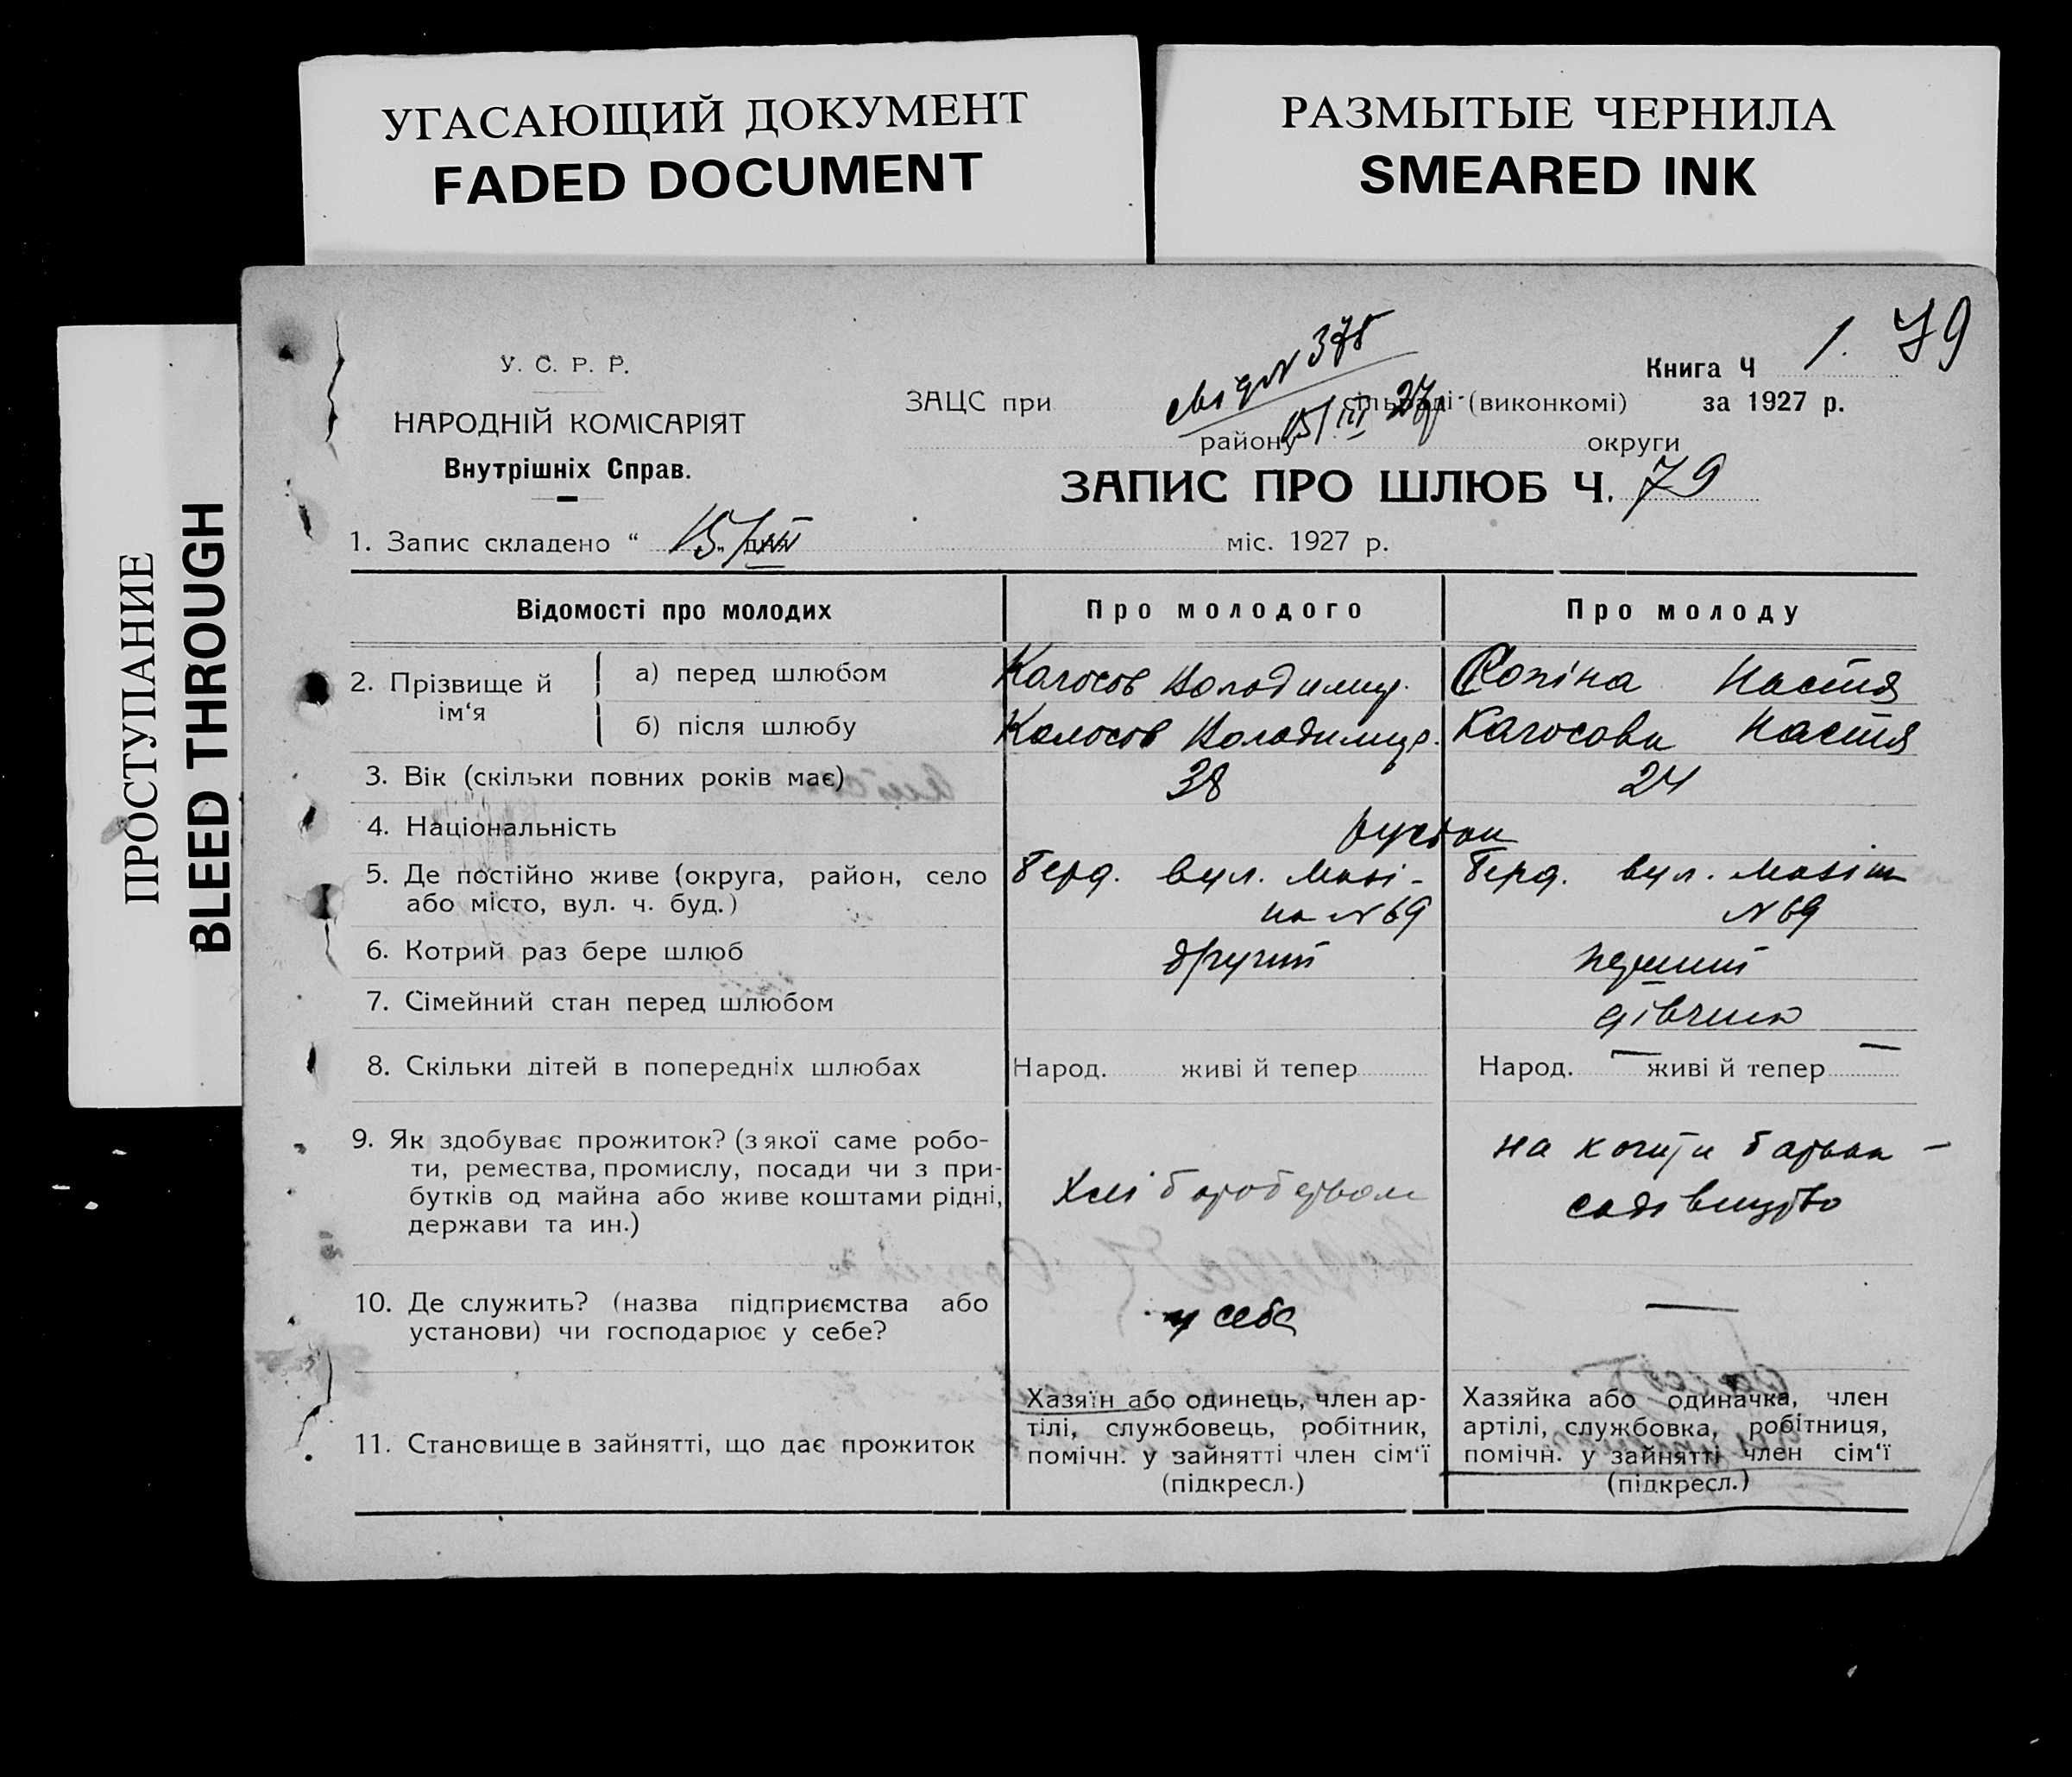 УГАСАЮЩИЙ ДОКУМЕНТ
FADED DOCUMENT
РАЗМЫТЫЕ ЧЕРНИЛА
SMEARED INK
ПРОСТУПАНИЕ
BLEED THROUGH
79
У. С. Р. Р.
НАРОДНІЙ КОМІСАРІЯТ
Внутрішніх Справ.
N 378
15/III 27р.
Книга Ч 1.
ЗАЦС при сільраді (виконкомі) за 1927 р.
району округи
ЗАПИС ПРО ШЛЮБ Ч. 79
1. Запис складено “ 15/III „ дня міс. 1927 р.
Відомості про молодих Про молодого Про молоду
2. Прізвище й ім‘я
а) перед шлюбом Колосов Володимир. Настя
б) після шлюбу Колосов Володимир. Колосова Настя
3. Вік (скільки повних років має) 38 24
4. Національність
5. Де постійно живе (округа, район, село Берд. вул. Мазі- Берд. вул. Мазін
або місто, вул. ч. буд.) на N 69 N 69
6. Котрий раз бере шлюб другий перший
7. Сімейний стан перед шлюбом дівчина
8. Скільки дітей в попередніх шлюбах Народ. живі й тепер Народ. — живі й тепер —
9. Як здобуває прожиток? (з якої саме робо-
ти, ремества, промислу, посади чи з при-
бутків од майна або живе коштами рідні,
держави та ин.)
Хліборобством
на кошти батька —
садівництво
10. Де служить? (назва підприємства або
установи) чи господарює у себе?
у себе —
11. Становище в зайнятті, що дає прожиток
Хазяїн або одинець, член ар-
тілі, службовець, робітник,
помічн. у зайнятті член сім‘ї
(підкресл.)
Хазяйка або одиначка, член
артілі, службовка, робітниця,
помічн. у зайнятті член сім‘ї
(підкресл.)